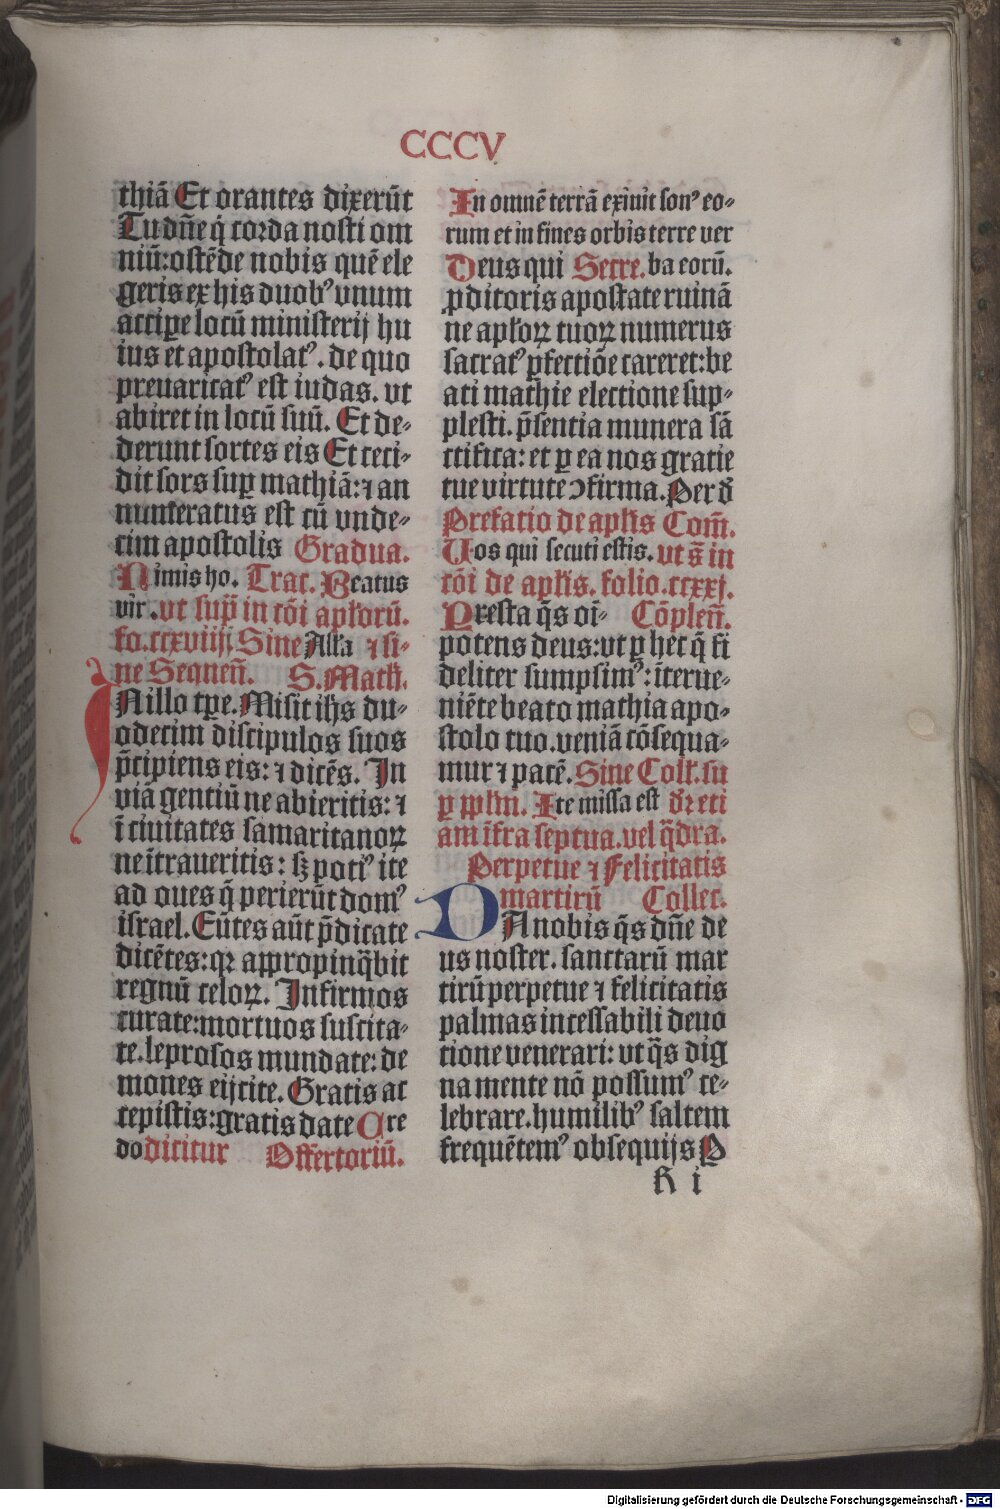 CCCV
thiā Et orantes dixerūt
Tu dn̄e q̇ corda nosti om
niū: ostēde nobis quē ele
geris ex his duobꝰ vnum
accipe locū ministerij hu
ius et apostolatꝰ. de quo
preuaricatꝰ est iudas. vt
abiret in locū suū. Et de⸗
derunt sortes eis Et ceci⸗
dit sors suꝑ mathiā: ⁊ an
numeratus est cū vnde⸗
cim apostolis Gradua.
Nimis ho. Trac. Beatus
vir. vt sup̄ in cōi apl'orū.
fo. ccxviiij. Sine Alla ⁊ si⸗
ne Sequen̄. S. Math.
IN illo tꝑe. Misit ih̄s du⸗
odecim discipulos suos
p̄cipiens eis: ⁊ dicēs. In
viā gentiū ne abieritis: ⁊
ī ciuitates samaritanoꝝ
ne ītraueritis: sꝫ potiꝰ ite
ad oues q̄ perierūt domꝰ
israel. Eūtes aūt p̄dicate
dicētes: qꝛ appropinq̄bit
regnū celoꝝ. Infirmos
curate: mortuos suscita⸗
te. leprosos mundate: de
mones eijcite. Gratis ac
cepistis: gratis date Cre
do dicitur Offertoriū.
In omnē terrā exiuit sonꝰ eo⸗
rum et in fines orbis terre ver
Deus qui Secre. ba eorū.
ꝓditoris apostate ruinā
ne apl'oꝝ tuoꝝ numerus
sacratꝰ ꝑfectiōe careret: be
ati mathie electione sup⸗
plesti. p̄sentia munera sā
ctifica: et ꝑ ea nos gratie
tue virtute ↄfirma. Per d̄
Prefatio de apl'is Com̄.
Uos qui secuti estis. vt s̄ in
cōi de apl'is. folio. ccxxj.
Presta q̄s oī⸗ Cōplen̄.
potens deus: vt ꝑ hec q̄ fi
deliter sumpsimꝰ: īterue⸗
niēte beato mathia apo⸗
stolo tuo. veniā cōsequa⸗
mur ⁊ pacē. Sine Coll. su
ꝑ ppl'm. Ite missa est dr̄ eti
am īfra septua. vel q̄dra.
Perpetue ⁊ Felicitatis
martirū Collec.
DA nobis q̄s dn̄e de
us noster. sanctarū mar
tirū perpetue ⁊ felicitatis
palmas incessabili deuo
tione venerari: vt q̄s dig
na mente nō possumꝰ ce⸗
lebrare. humilibꝰ saltem
frequētemꝰ obsequijs P
h i
Digitalisierung gefördert durch die Deutsche Forschungsgemeinschaft - DFG